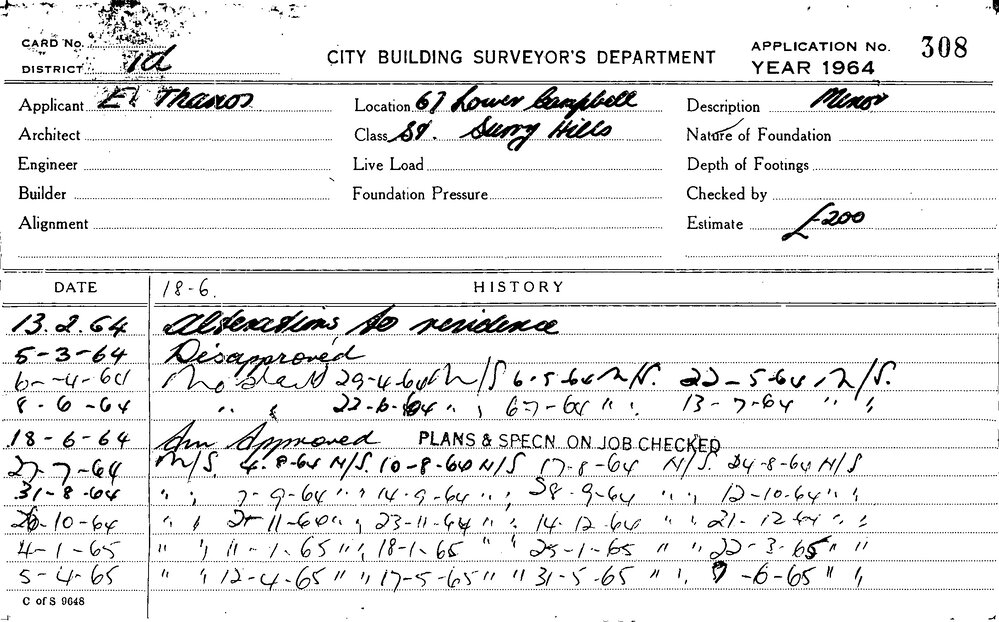 CARD No.
DISTRICT 1d
CITY BUILDING SURVEYOR'S DEPARTMENT
APPLICATION No. 308
YEAR 1964
Applicant E. Thanos Location 67 Lower Campbell Description Minor
Architect Class St. Surry Hills Nature of Foundation
Engineer Live Load Depth of Footings
Builder Foundation Pressure Checked by
Alignment Estimate £200
DATE 18-6. HISTORY
13.2.64 Alterations to residence
5-3-64 Disapproved
6-4-64 No start 29-4-64 N/S 6-5-64 N/S. 22-5-64 N/S.
8-6-64 " " 22-6-64 " " 6-7-64 " " 13-7-64 " "
18-6-64 Am Approved PLANS & SPECN. ON JOB CHECKED
27-7-64 N/S. 4-8-64 N/S. 10-8-64 N/S 17-8-64 N/S. 24-8-64 N/S
31-8-64 " " 7-9-64 " " 14-9-64 " " 28-9-64 " " 12-10-64 " "
26-10-64 " " 2-11-64 " " 23-11-64 " " 14-12-64 " " 21-12-64 " "
4-1-65 " " 11-1-65 " " 18-1-65 " " 25-1-65 " " 22-3-65 " "
5-4-65 " " 12-4-65 " " 17-5-65 " " 31-5-65 " " 9-6-65 " "
C of S 9648